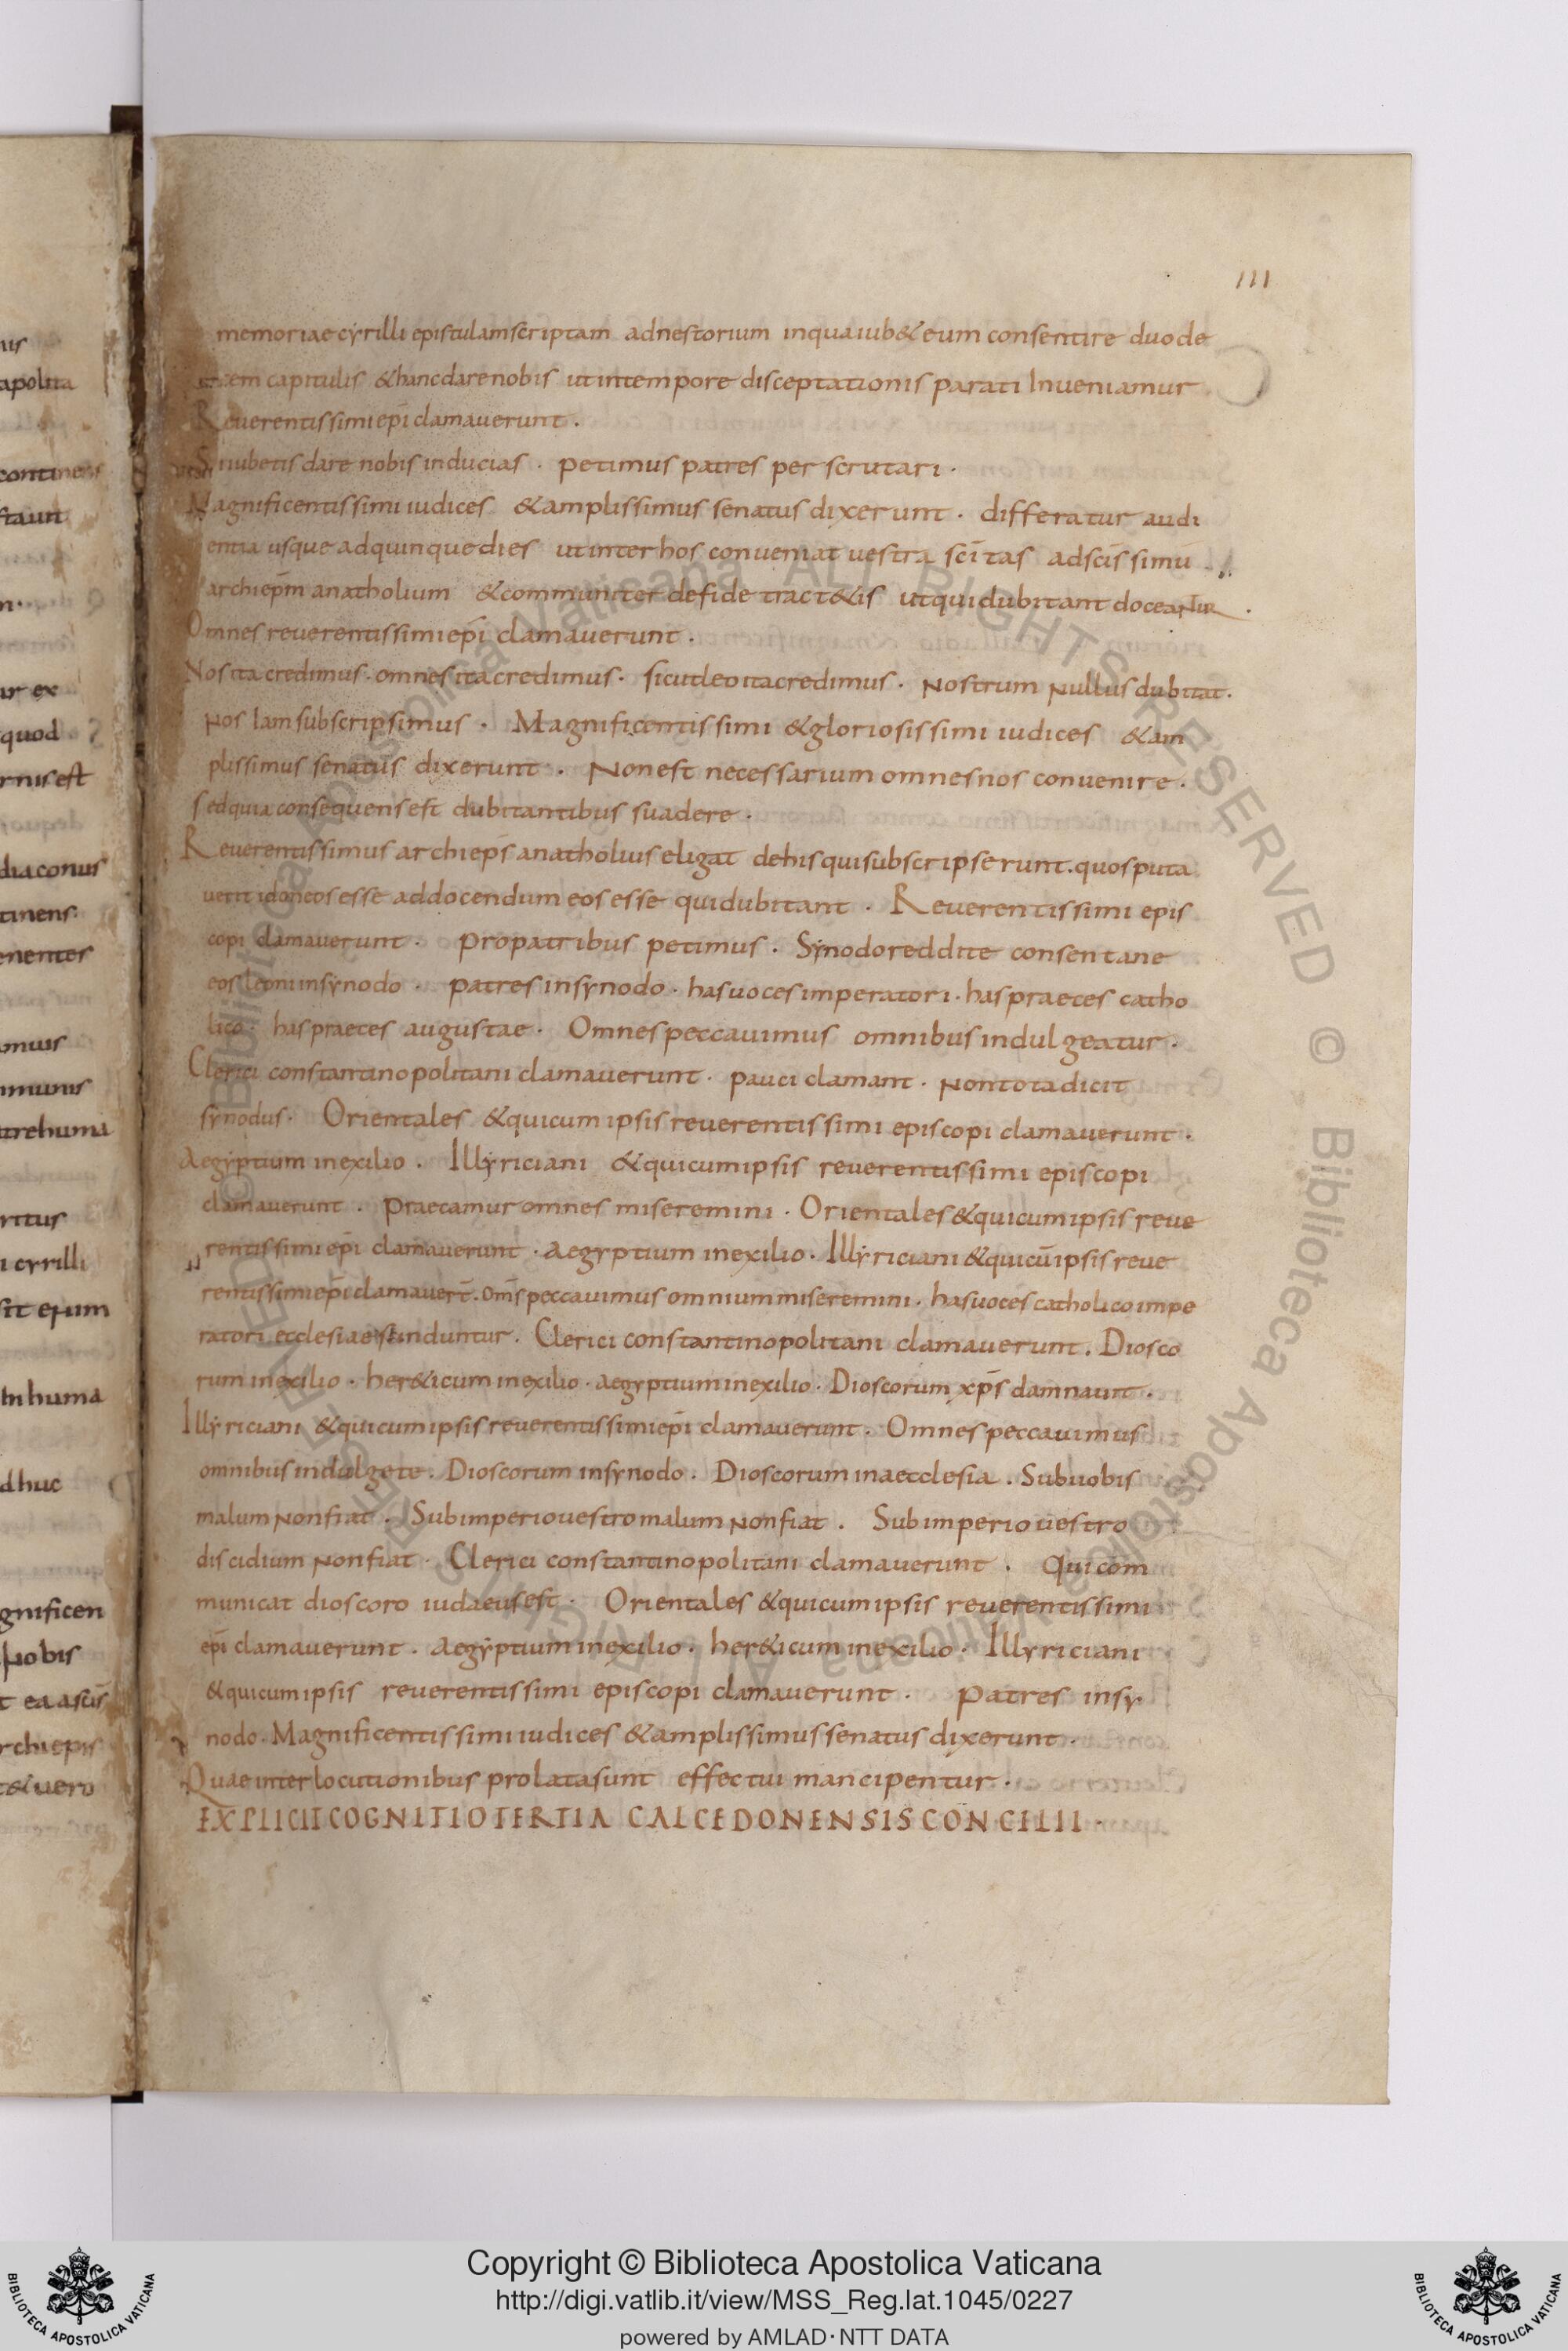 111
memoriae cyrilli epistulam scriptam ad nestorium in qua iub& eum consentire duode
cem capitulis & hanc dare nobis ut in tempore disceptationis parati Inueniamur
Reuerentissimi epī clamauerunt.
Si iubetis dare nobis inducias. petimus patres per scrutari.
Magnificentissimi iudices & amplissimus senatus dixerunt. differatur audi
entia usque ad quinque dies ut inter hos conueniat uestra sc̄itas ad sc̄issimū
archiep̄m anatholium & communiter de fide tract&is ut qui dubitant doceantur.
Omnes reuerentissimi epī clamauerunt.
Nos ita credimus. omnes ita credimus. sicut leo ita credimus. Nostrum Nullus dubitat.
Nos Iam subscripsimus. Magnificentissimi & gloriosissimi iudices & am
plissimus senatus dixerunt. Non est necessarium omnes nos conuenire.
sed quia consequens est dubitantibus suadere.
Reuerentissimus archiep̄s anatholius eligat de his qui subscripserunt. quos puta
uerit idoneos esse ad docendum eos esse qui dubitant. Reuerentissimi epis
copi clamauerunt. Pro patribus petimus. Synodo reddite consentane
eos leoni in synodo. patres in synodo. has uoces imperatori. has praeces catho
lico. has praeces augustae. Omnes peccauimus omnibus indulgeatur.
Clerici constantinopolitani clamauerunt. pauci clamant. Non tota dicit
synodus. Orientales & qui cum ipsis reuerentissimi episcopi clamauerunt.
Aegyptium in exilio. Illyriciani & qui cum ipsis reuerentissimi episcopi
clamauerunt. Praecamur omnes miseremini. Orientales & qui cum ipsis reue
rentissimi epī clamauerunt. Aegyptium in exilio. Illyriciani & qui cū ipsis reue
rentissimi epī clamauer̄t. Om̄s peccauimus omnium miseremini. has uoces catholico impe
ratori ecclesiae scinduntur. Clerici constantinopolitani clamauerunt. Diosco
rum in exilio. her&icum in exilio. aegyptium in exilio. Dioscorum xp̄s damnauit.
Illyriciani & qui cum ipsis reuerentissimi epī clamauerunt. Omnes peccauimus
omnibus indulgete. Dioscorum in synodo. Dioscorum in aecclesia. Sub uobis
malum Non fiat. Sub imperio uestro malum Non fiat. Sub imperio uestro
discidium Non fiat. Clerici constantinopolitani clamauerunt. Qui com
municat dioscoro iudaeus est. Orientales & qui cum ipsis reuerentissimi
epī clamauerunt. Aegyptium in exilio. her&icum in exilio. Illyriciani
& qui cum ipsis reuerentissimi episcopi clamauerunt. Patres in sy
nodo. Magnificentissimi iudices & amplissimus senatus dixerunt.
Quae inter locutionibus prolata sunt effectui mancipentur.
EXPLICIT COGNITIO TERTIA CALCEDONENSIS CONCILII.
Copyright © Biblioteca Apostolica Vaticana
http://digi.vatlib.it/view/MSS_Reg.lat.1045/0227
powered by AMLAD·NTT DATA